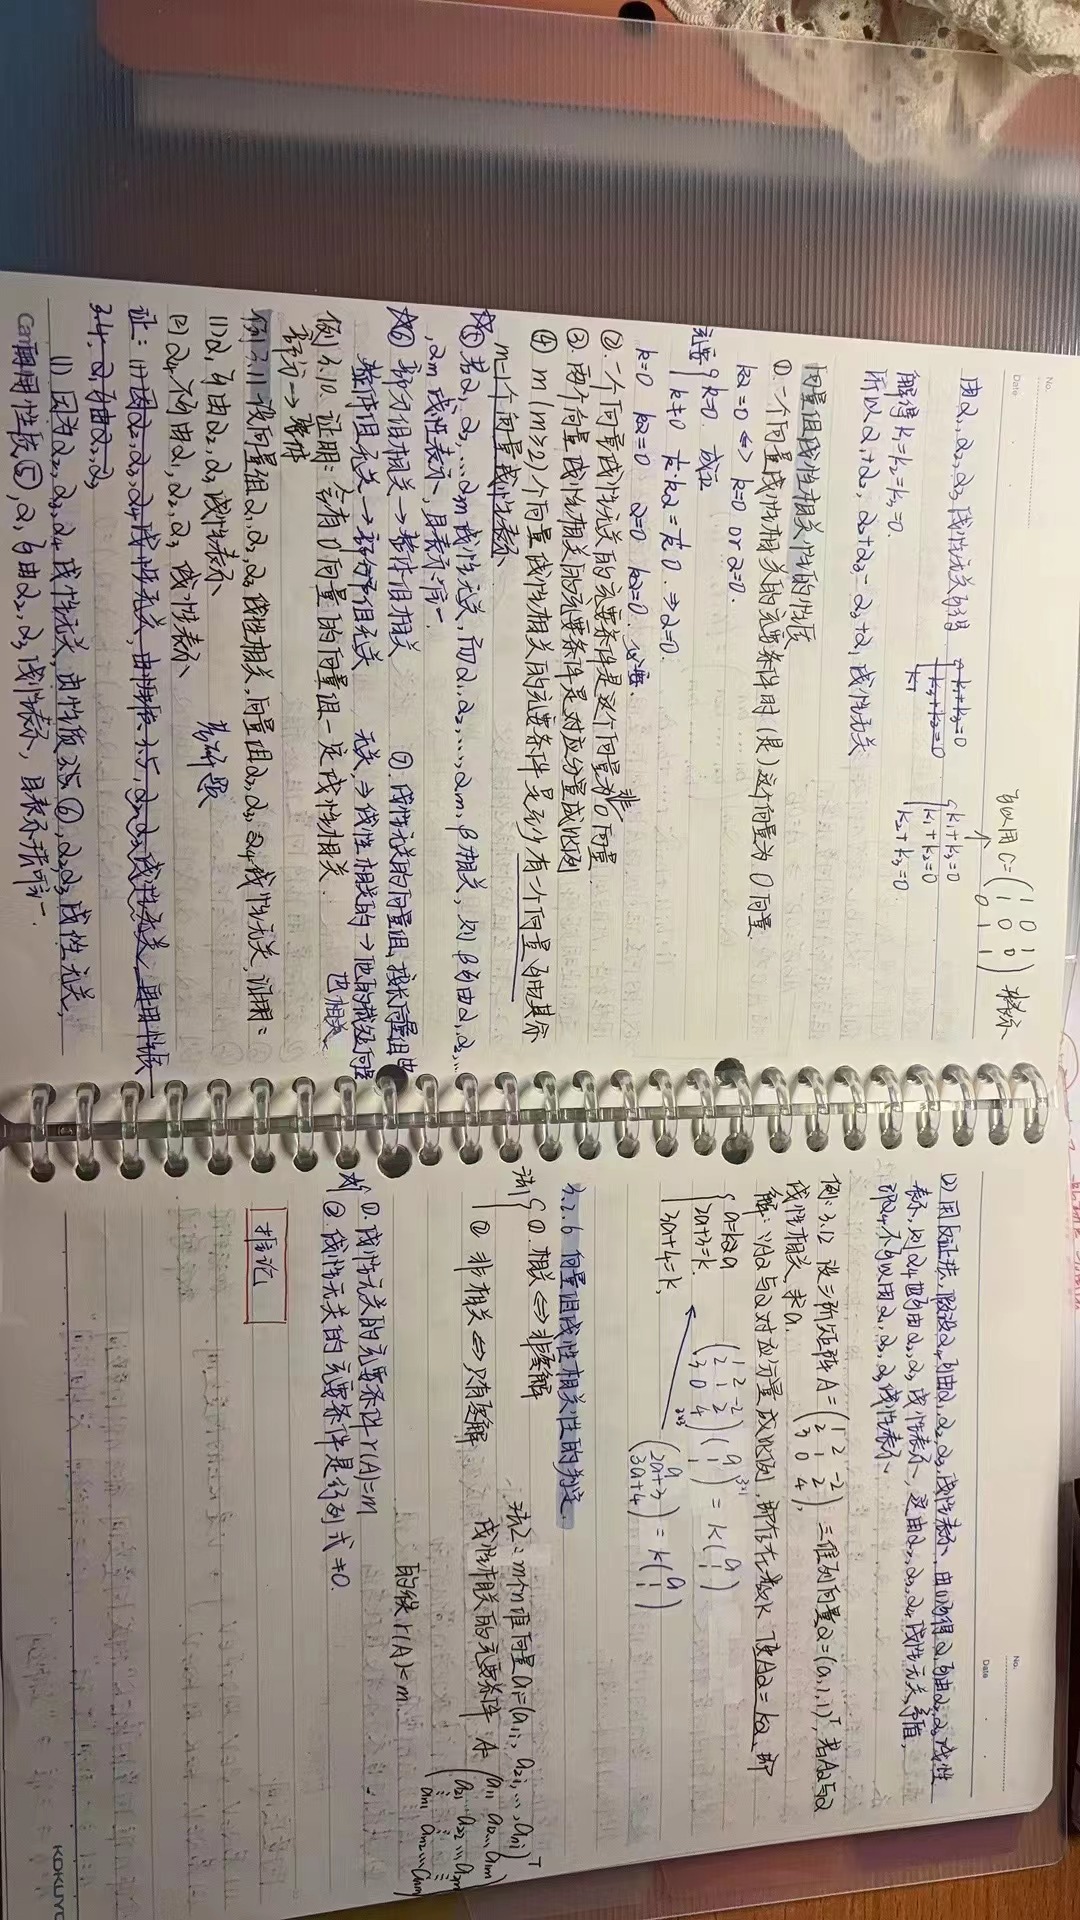 No.
Date
可以用 C=(1 0 1
1 0 0
0 1 1) 来表示
由α₁,α₂,α₃线性无关可得
k₁+k₃=0
k₃+k₂=0
k₁
k₁+k₃=0
k₁+k₂=0
k₂+k₃=0.
解得k₁=k₂=k₃=0.
所以α₁+α₂, α₂+α₃ α₃+α₁线性无关
向量组线性相关性的性质
①.一个向量线性相关的充要条件时(是)这个向量为0向量.
kα=0 <=> k=0 or α=0.
充要 { k=0. 成立
k≠0 1/k·kα=1/k 0.⇒α=0.
k=0 kα=0 α=0 kα=0. 必要.
②.一个向量线性无关的充要条件是这个向量为非0向量.
③.两个向量线性相关的充要条件是对应分量成比例
④ m(m≥2)个向量线性相关的充要条件是至少有一个向量可由其余
m-1个向量线性表示
☆⑤若α₁,α₂,…αm线性无关,而α₁,α₂,…,αm,β相关,则β可由α₁,α₂,…
,αm线性表示,且表示唯一.
☆⑥ 部分组相关→整体组相关
整体组无关→部分组无关
⑦.线性无关的向量组,接长向量组也
无关.⇒线性相关的→他的截短向量
也相关
例3.10.证明:含有0向量的向量组一定线性相关.
部分→整体
例3.11设向量组α₁,α₂,α₃线性相关,向量组α₂,α₃,α₄线性无关,证明:
(1)α₁可由α₂,α₃线性表示
考研题
(2)α₄不可由α₁,α₂,α₃线性表示
证:(1)因α₂,α₃,α₄线性无关,由性质3.5,α₂,α₃线性无关,再用性质
3.4,α₁可由α₂,α₃
(1)因为α₂,α₃,α₄线性无关,由性质3.5⑥,α₂,α₃线性无关,
再用性质⑤,α₁可由α₂,α₃线性表示,且表示法唯一.
No.
Date
(2)用反证法,假设α₄可由α₁,α₂,α₃线性表示.由(1)可得α₁可由α₂,α₃线性
表示,则α₄也可由α₂,α₃线性表示,这由α₂,α₃,α₄线性无关矛盾,
即α₄不可以由α₁,α₂,α₃线性表示.
例:3.12 设三阶矩阵A=(1 2 -2
2 1 2
3 0 4),三维列向量α=(a,1,1)ᵀ,若Aα与α
线性相关,求a.
解:∵Aα与α对应分量成比例,即存在数k使Aα=kα,即
a=ka
2a+3=k.
3a+4=k.
(1 2 -2
2 1 2
3 0 4)(a
1
1)=k(a
1
1)
(a
2a+3
3a+4)=k(a
1
1)
3.2.6 向量组线性相关性的判定.
法1 { ①.相关⇔非零解
② 非相关⇔只有零解
法2:m个n维向量aᵢ=(a₁ᵢ,a₂ᵢ,…,aₙᵢ)ᵀ
线性相关的充要条件 A=(a₁₁ a₁₂…a₁m
a₂₁ a₂₂…a₂m
⋮ ⋮ ⋮
aₙ₁ aₙ₂…aₙm)
的秩r(A)<m.
☆ { ①.线性无关的充要条件r(A)=m
②.线性无关的充要条件是行列式≠0.
推论
KOKUYO